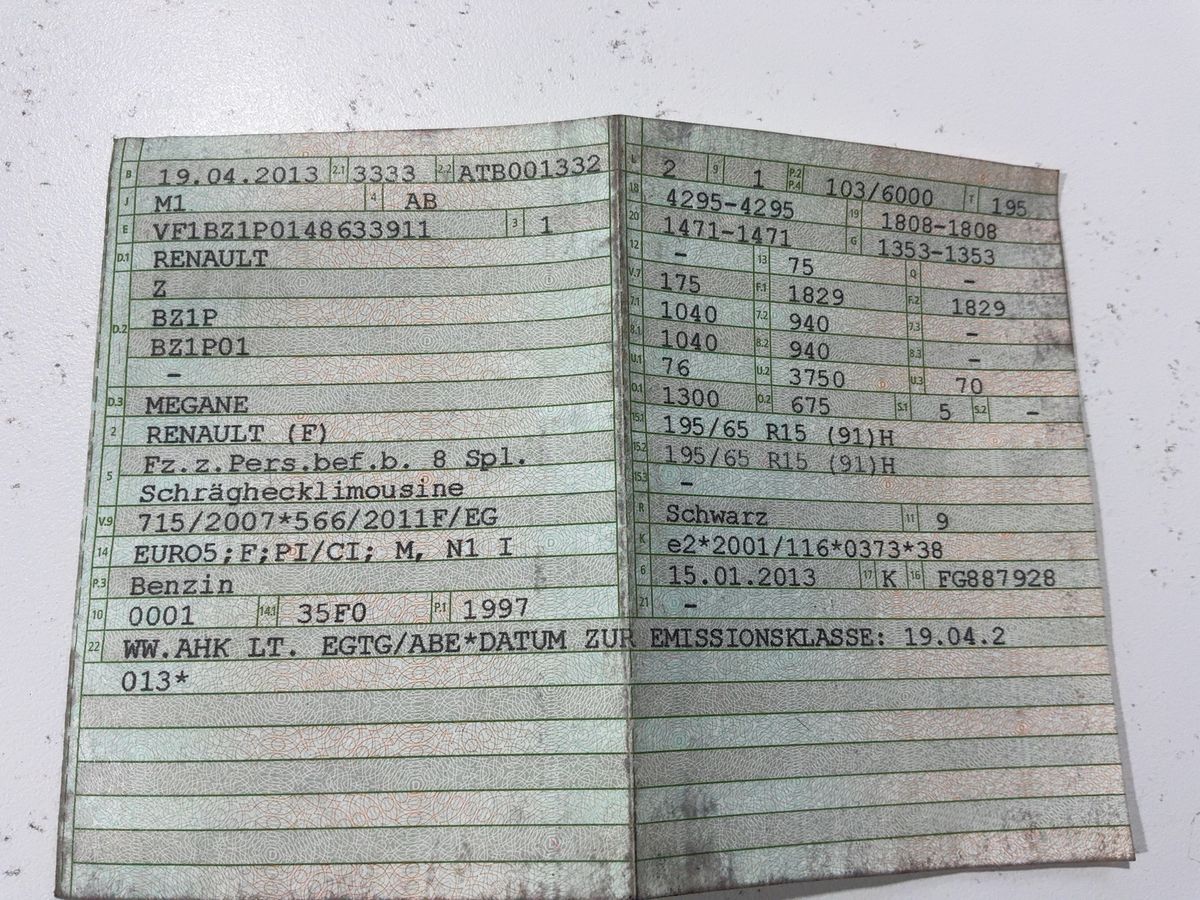 B 19.04.2013 2.1 3333 2.2 ATB001332
J M1 4 AB
E VF1BZ1P0148633911 3 1
D.1 RENAULT
Z
D.2 BZ1P
BZ1P01
–
D.3 MEGANE
2 RENAULT (F)
Fz.z.Pers.bef.b. 8 Spl.
5 Schräghecklimousine
V.9 715/2007*566/2011F/EG
14 EURO5;F;PI/CI; M, N1 I
P.3 Benzin
10 0001 14.1 35F0 P.1 1997
L 2 9 1 P.2 P.4 103/6000 T 195
18 4295-4295 19 1808-1808
20 1471-1471 G 1353-1353
12 – 13 75 Q –
V.7 175 F.1 1829 F.2 1829
7.1 1040 7.2 940 7.3 –
8.1 1040 8.2 940 8.3 –
U.1 76 U.2 3750 U.3 70
O.1 1300 O.2 675 S.1 5 S.2 –
15.1 195/65 R15 (91)H
15.2 195/65 R15 (91)H
15.3 –
R Schwarz 11 9
K e2*2001/116*0373*38
6 15.01.2013 17 K 16 FG887928
21 –
22 WW.AHK LT. EGTG/ABE*DATUM ZUR EMISSIONSKLASSE: 19.04.2
013*